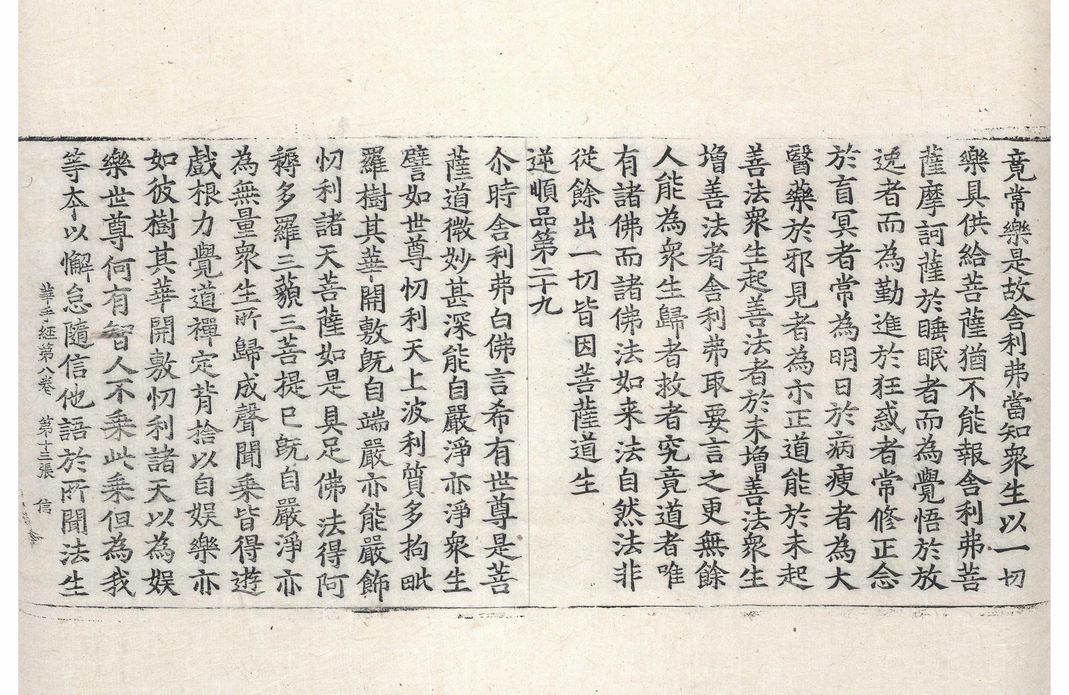 竟常樂是故舍利弗當知衆生以一切
樂具供給菩薩猶不能報舍利弗菩
薩摩訶薩於睡眠者而為覺悟於放
逸者而為勤進於狂惑者常修正念
於盲冥者常為明日於病瘦者為大
醫藥於邪見者為示正道能於未起
善法衆生起善法者於未增善法衆生
增善法者舍利弗取要言之更無餘
人能為衆生歸者救者究竟道者唯
有諸佛而諸佛法如来法自然法非
從餘出一切皆因菩薩道生
逆順品第二十九
尒時舍利弗白佛言希有世尊是菩
薩道微妙甚深能自嚴淨亦淨衆生
譬如世尊忉利天上波利質多拘毗
羅樹其華開敷旣自端嚴亦能嚴飾
忉利諸天菩薩如是具足佛法得阿
耨多羅三藐三菩提已旣自嚴淨亦
為無量衆生所歸成聲聞乗皆得遊
戲根力覺道禪定背捨以自娱樂亦
如彼樹其華開敷忉利諸天以為娱
樂世尊何有智人不乗此乗但為我
等本以懈怠隨信他語於所聞法生
華手經第八卷 第十三張 信